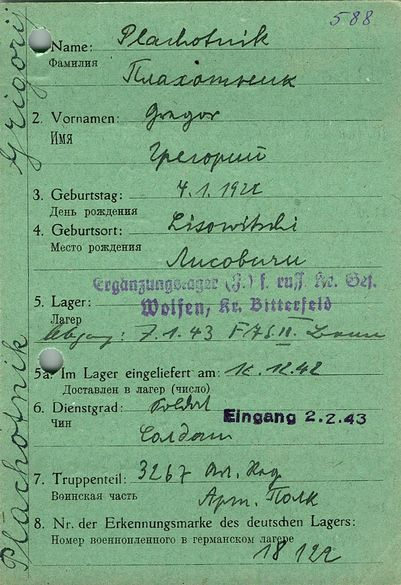 588
Name: Plachotnik
Фамилия Плахотник
2. Vornamen: Gregor
Имя Грегорий
3. Geburtstag: 4.1.1922
День рождения
4. Geburtsort: Lisowitschi
Место рождения Лисовичи
Ergänzungslager (J.) f. russ. Kr. Gef.
Wolfen, Kr. Bitterfeld
5. Lager:
Лагер
Abgang: 7.1.43
5a. Im Lager eingeliefert am: 12.42
Доставлен в лагер (число)
6. Dienstgrad: Soldat
Чин Солдат
Eingang 2.2.43
7. Truppenteil: 3267 Art. Reg.
Воинская часть Арт. Полк
8. Nr. der Erkennungsmarke des deutschen Lagers:
Номер военнопленного в германском лагере
18122
Plachotnik Grigorij